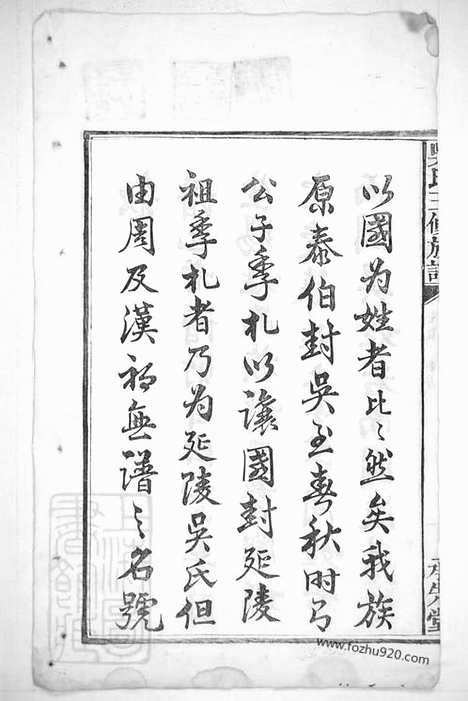 以國为姓者比〻然矣我族
原泰伯封吳至春秋时
公子季札以讓國封延陵
祖季札者乃为延陵吳氏但
由周及漢初無譜之名號
www.fozhu920.com